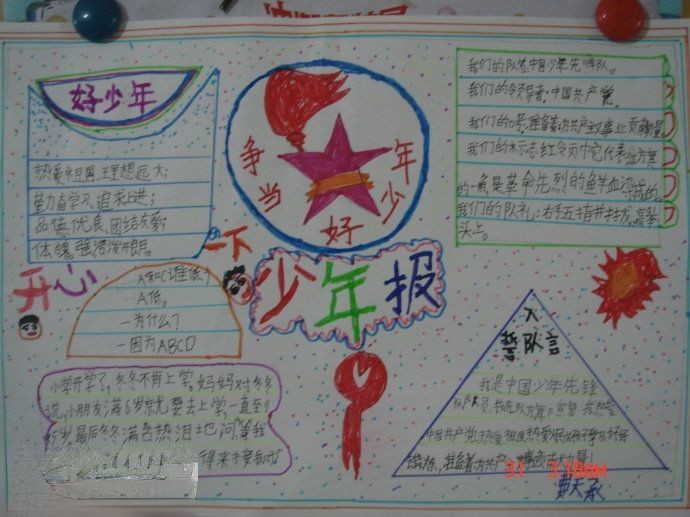 好少年
热爱祖国,理想远大;
勤奋学习、追求上进;
品德优良、团结友爱;
体魄强活泼开朗。
争当好少年
我们的队名:中国少年先锋队。
我们的领导者:中国共产党。
我们的口号:准备着为共产主义事业贡献力量
我们的标志:红领巾它代表红方旗
的一角是革命先烈的鲜血染成的。
我们的队礼:右手五指并拢,高举
头上。
开心一下
A和C谁低?
一A低。
一为什么?
一因为ABCD
少年报
入
誓队言
我是中国少年先锋
队队员,我在队旗下宣誓:我热爱
中国共产党,热爱祖国,热爱人民,好好学习,好好
锻炼,准备着为共产
力量!
小学开学了,冬冬不肯上学。妈妈对冬冬
说,小朋友满6岁就要去上学,一直到
岁。最后冬冬满含热泪地问:等我
得来干
费天承
31